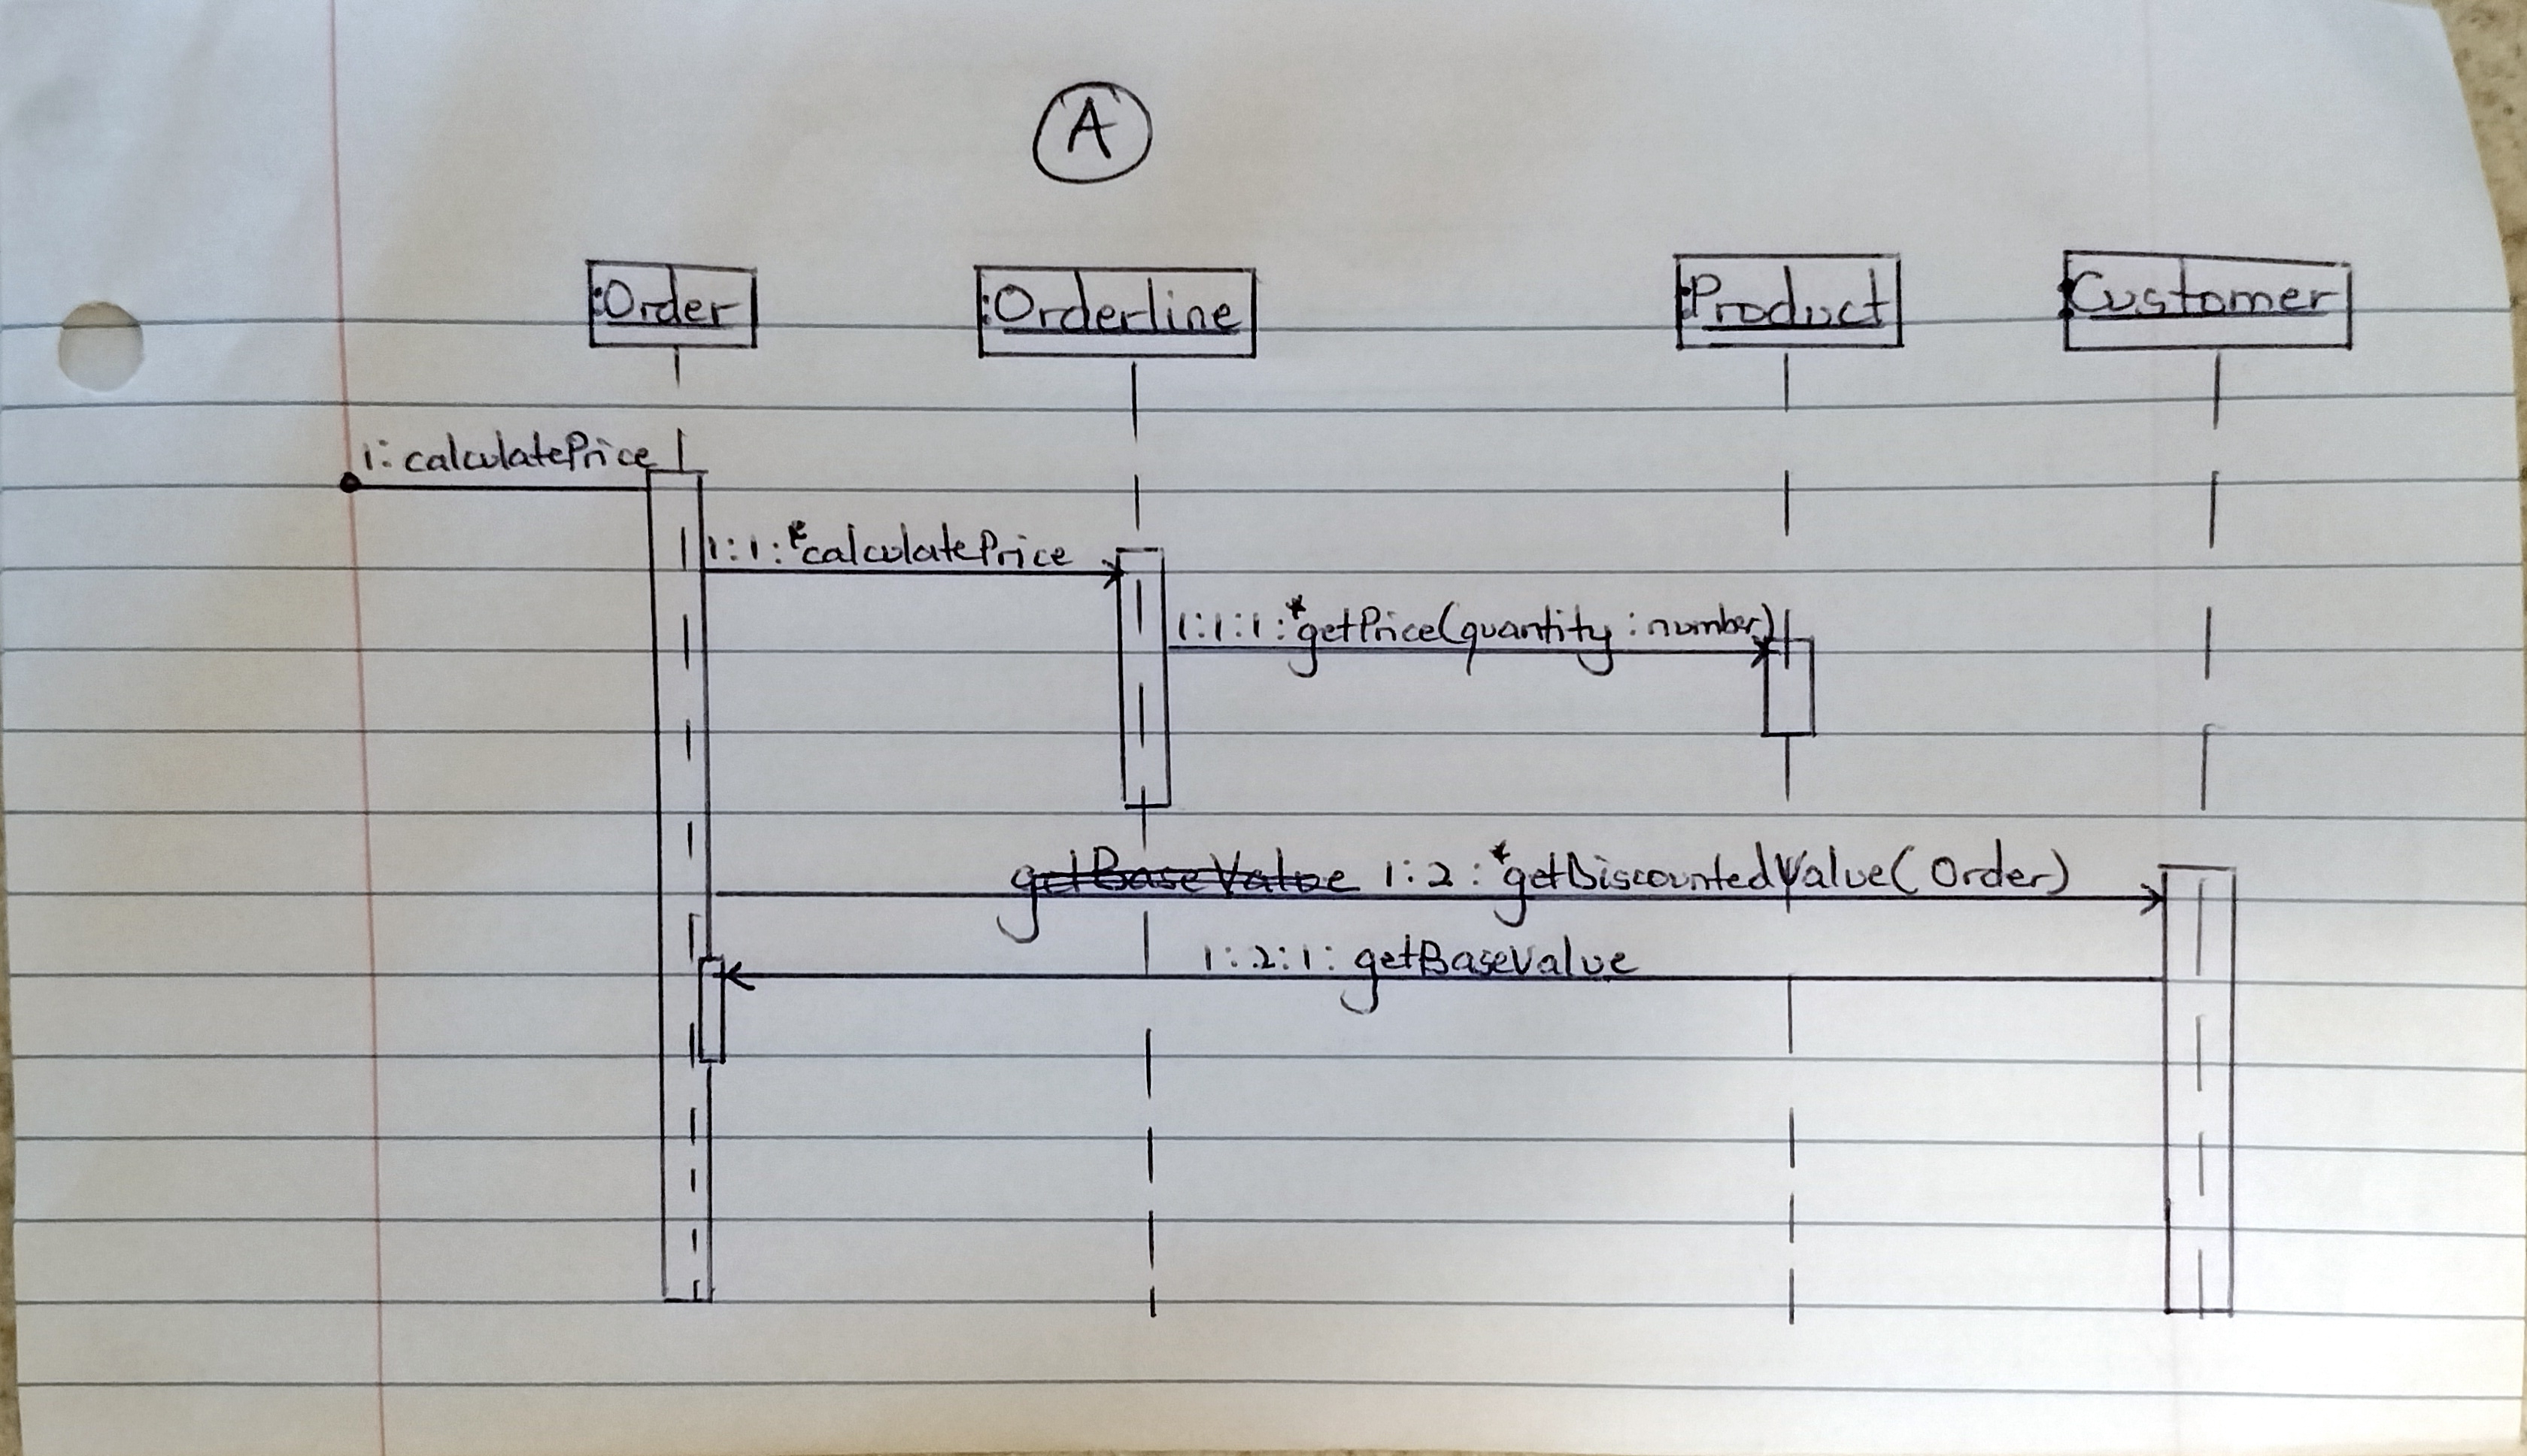 A
:Order
:Orderline
:Product
:Customer
1: calculatePrice
1:1:*calculatePrice
1:1:1:*getPrice(quantity:number)
getBaseValue 1:2:*getDiscountedValue(Order)
1:2:1: getBaseValue